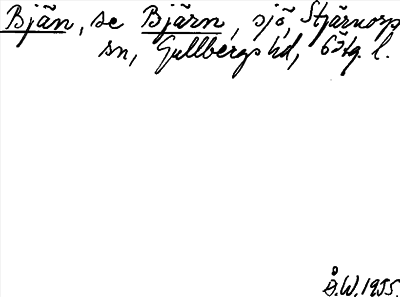 Bjän, se Bjärn, sjö, Stjärnorp
sn, Gullbergs hd, Östg. l.
Å.W. 1955.